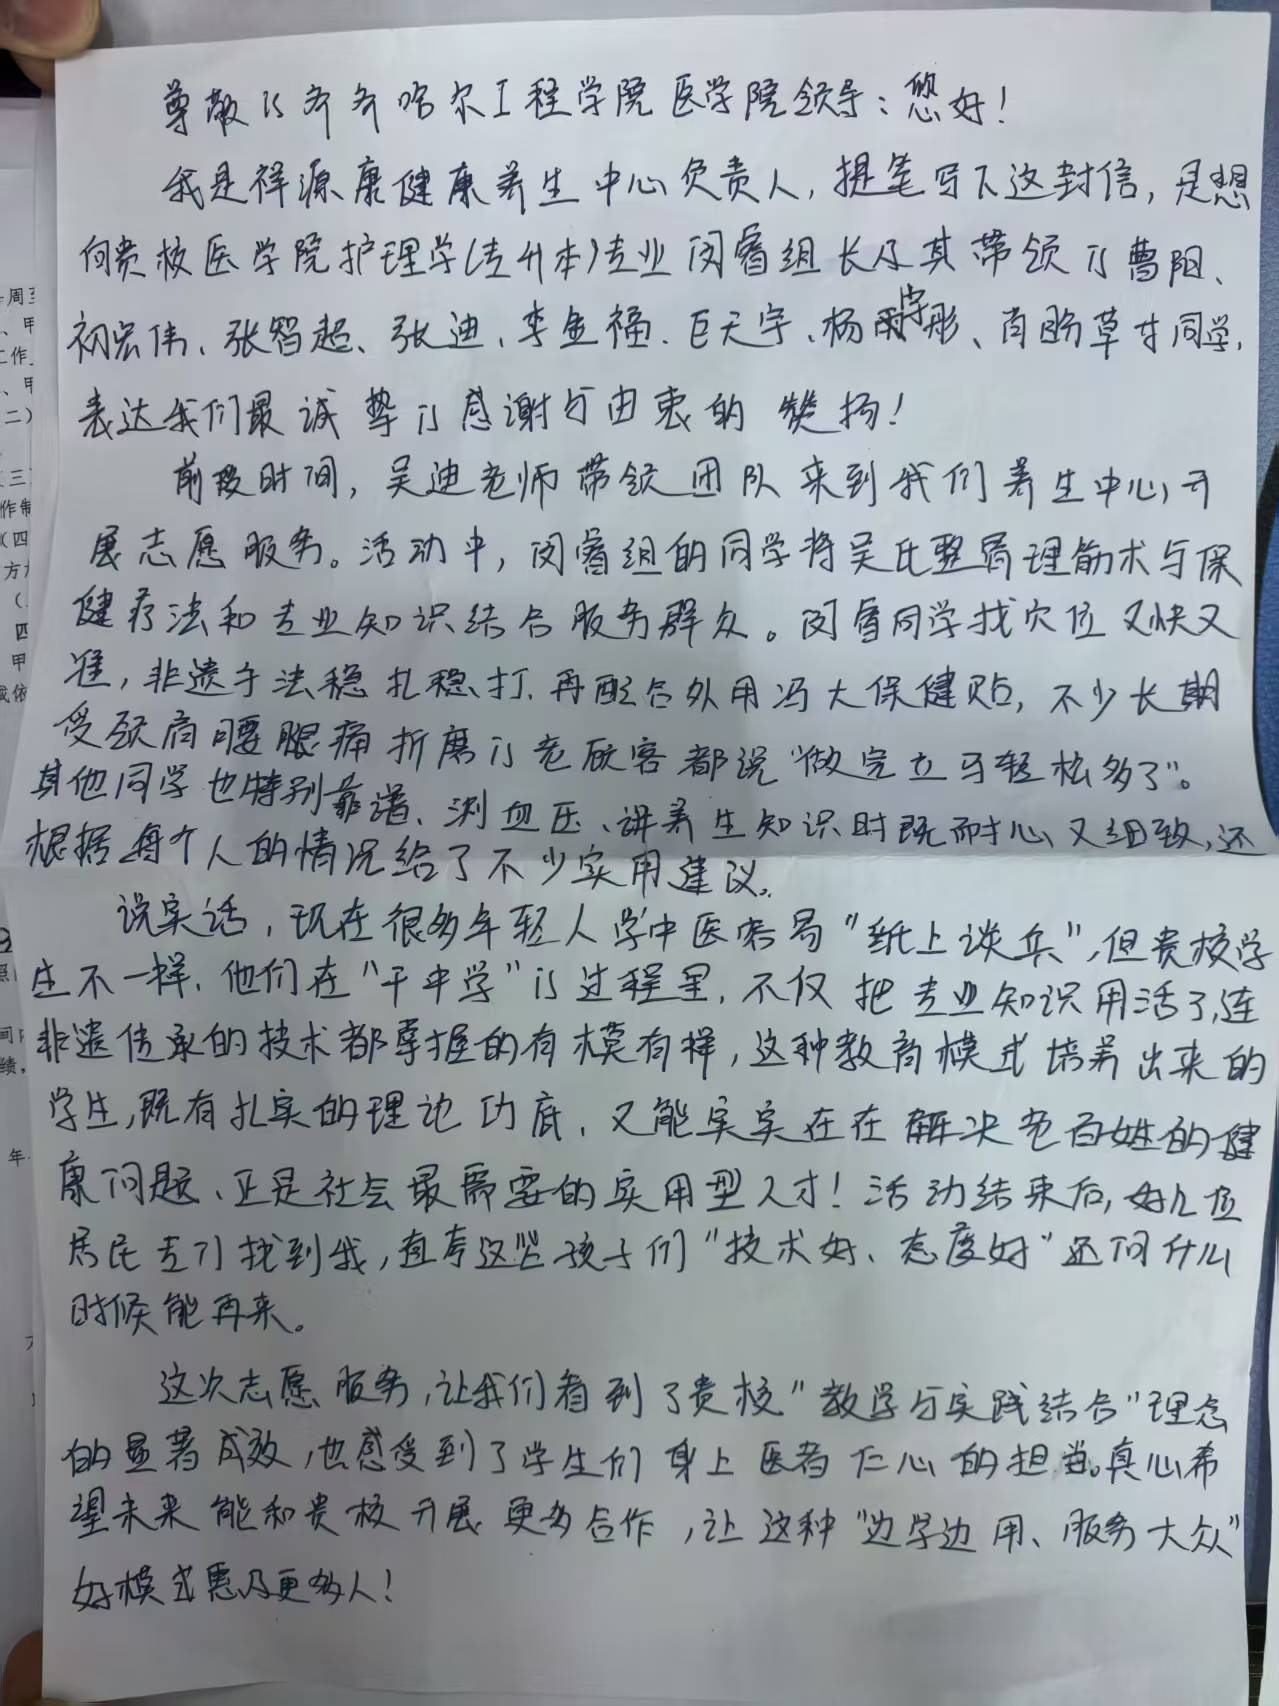 尊敬的齐齐哈尔工程学院医学院领导：您好！
我是祥源康健康养生中心负责人，提笔写下这封信，是想
向贵校医学院护理学(专升本)专业闵睿组长及其带领的曹阳、
初宏伟、张智超、张迪、李金福、巨天宇、杨雨彤、肖旸草等同学，
表达我们最诚挚的感谢与由衷的赞扬！
前段时间，吴迪老师带领团队来到我们养生中心开
展志愿服务。活动中，闵睿组的同学将吴氏整脊理筋术与保
健疗法和专业知识结合服务群众。闵睿同学找穴位又快又
准，非遗手法稳扎稳打，再配合外用冯大保健贴，不少长期
受颈肩腰腿痛折磨的老顾客都说“做完立马轻松多了”。
其他同学也特别靠谱、测血压、讲养生知识时既耐心又细致，还
根据每个人的情况给了不少实用建议。
说实话，现在很多年轻人学中医容易“纸上谈兵”，但贵校学
生不一样，他们在“干中学”的过程里，不仅把专业知识用活了，连
非遗传承的技术都掌握的有模有样，这种教育模式培养出来的
学生，既有扎实的理论功底，又能实实在在解决老百姓的健
康问题、正是社会最需要的实用型人才！活动结束后，好几位
居民专门找到我，直夸这些孩子们“技术好、态度好”还问什么
时候能再来。
这次志愿服务，让我们看到了贵校“教学与实践结合”理念
的显著成效，也感受到了学生们身上医者仁心的担当。真心希
望未来能和贵校开展更多合作，让这种“边学边用、服务大众”
好模式惠及更多人！